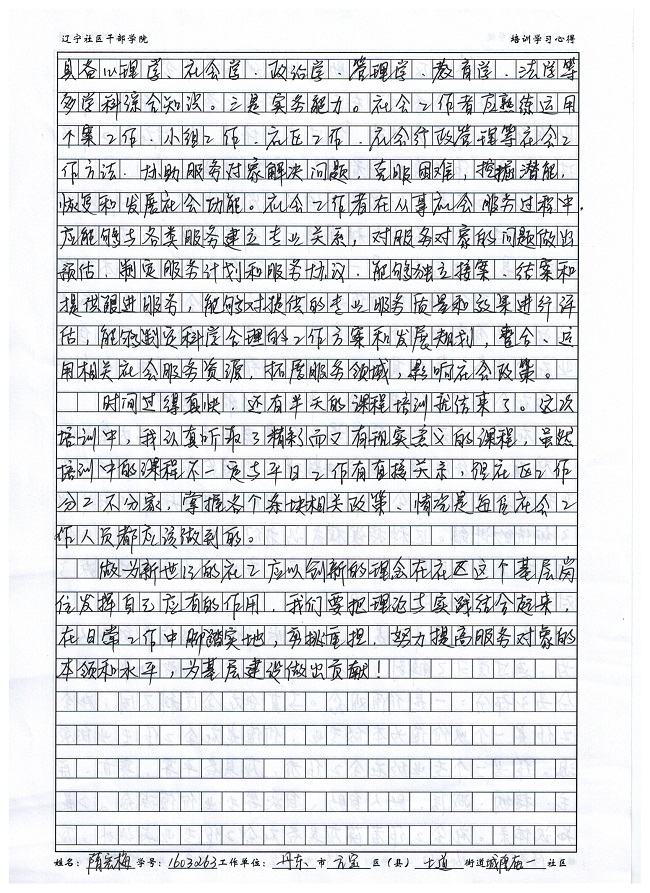 辽宁社区干部学院 培训学习心得
具备心理学、社会学、政治学、管理学、教育学、法学等
多学科综合知识。三是实务能力。社会工作者应熟练运用
个案工作、小组工作、社区工作、社会行政管理等社会工
作方法、协助服务对象解决问题，克服困难，挖掘潜能，
恢复和发展社会功能。社会工作者在从事社会服务过程中，
应能够与各类服务建立专业关系，对服务对象的问题做出
预估、制定服务计划和服务协议、能够独立接案、结案和
提供跟进服务，能够对提供的专业服务质量和效果进行评
估，能够制定科学合理的工作方案和发展规划，整合、运
用相关社会服务资源，拓展服务领域，影响社会政策。
时间过得真快，还有半天的课程培训就结束了。这次
培训中，我认真听取了精彩而又有现实意义的课程，虽然
培训中的课程不一定与平日工作有直接关系，但社区工作
分工不分家，掌握各个条块相关政策、情况是每位社会工
作人员都应该做到的。
做为新世纪的社工应以创新的理念在社区这个基层岗
位发挥自己应有的作用，我们要把理论与实践结合起来，
在日常工作中脚踏实地，勇挑重担，努力提高服务对象的
本领和水平，为基层建设做出贡献！
姓名：隋宏梅 学号：1603263 工作单位：丹东 市 元宝 区（县） 七道 街道 社区